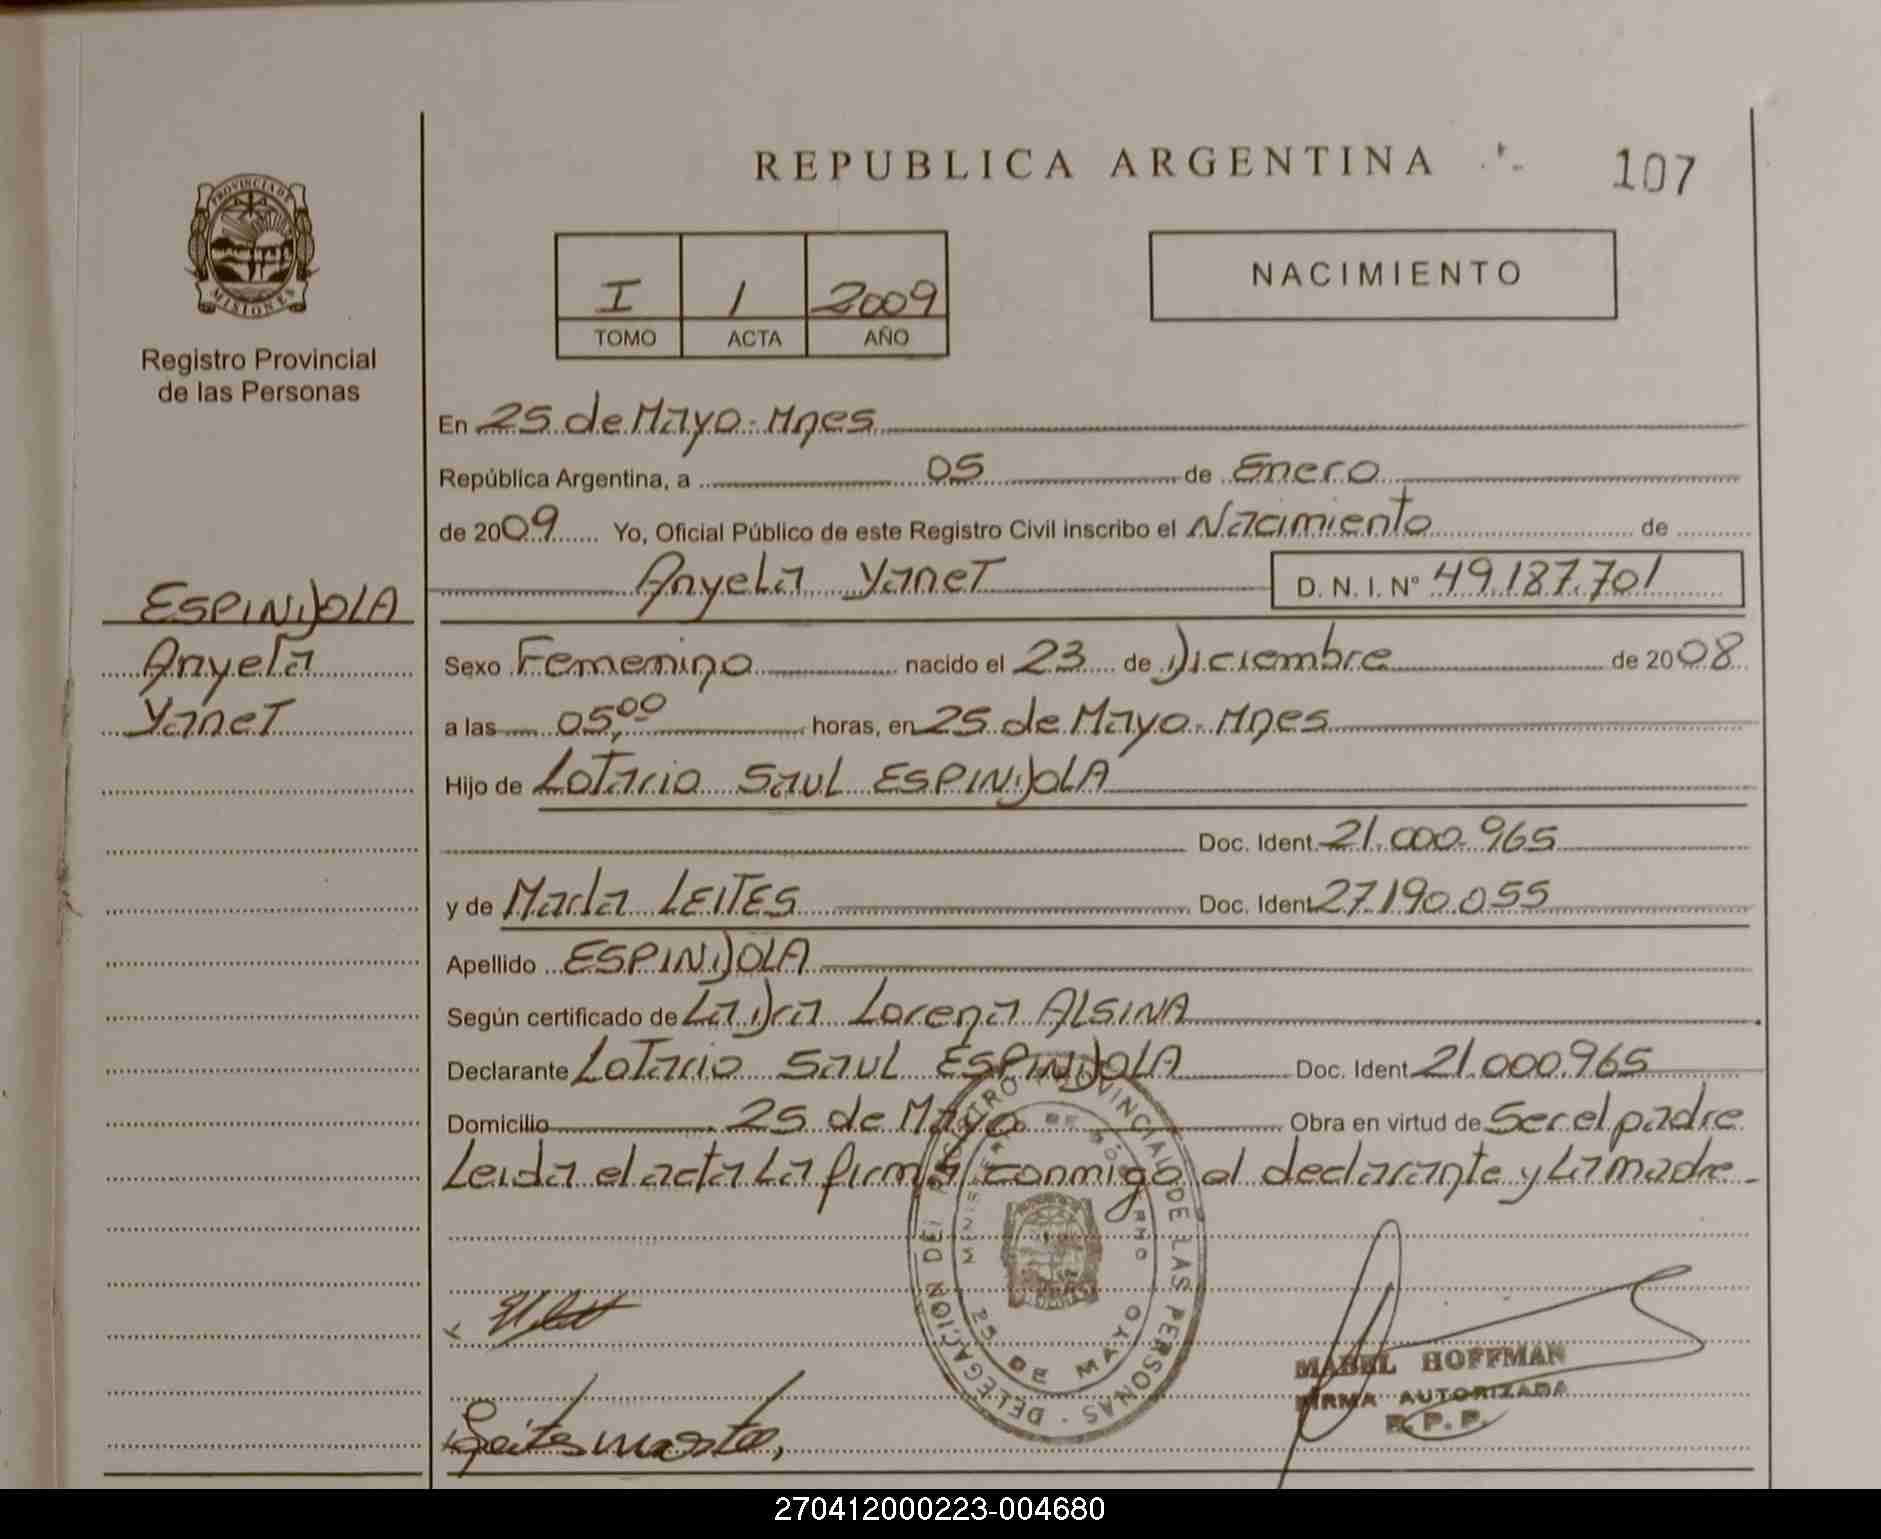 REPUBLICA ARGENTINA
107
PROVINCIA DE
MISIONES
Registro Provincial
de las Personas
I 1 2009
TOMO ACTA AÑO
NACIMIENTO
En 25 de Mayo - Mnes
República Argentina, a 05 de Enero
de 2009 Yo, Oficial Público de este Registro Civil inscribo el Nacimiento de
Anyela Yanet D. N. I. N° 49.187.701
ESPINDOLA
Anyela
Yanet
Sexo Femenino nacido el 23 de Diciembre de 2008
a las 05,00 horas, en 25 de Mayo - Mnes
Hijo de Lotario Saul ESPINDOLA
Doc. Ident. 21.000.965
y de Marta LEITES Doc. Ident 27.190.055
Apellido ESPINDOLA
Según certificado de La Dra Lorena ALSINA
Declarante Lotario Saul ESPINDOLA Doc. Ident 21.000.965
Domicilio 25 de Mayo Obra en virtud de Ser el padre
Leida el acta La firma conmigo el declarante y La madre -
DELEGACION DEL REGISTRO PROVINCIAL DE LAS PERSONAS -
25 DE MAYO
MABEL HOFFMAN
FIRMA AUTORIZADA
R.P.P.
Leites marta,
270412000223-004680